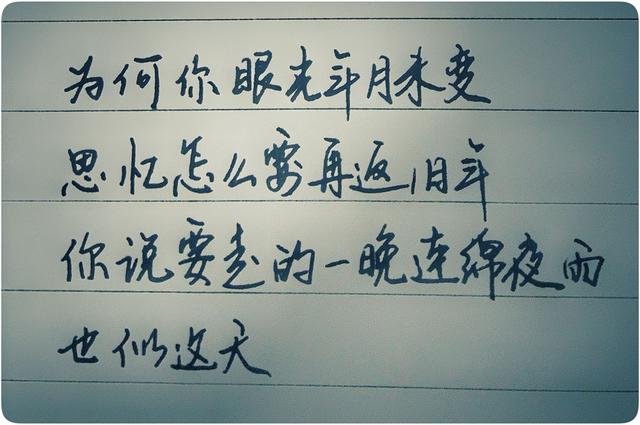 为何你眼光年月未变
思忆怎么要再返旧年
你说要走的一晚连绵夜雨
也似这天